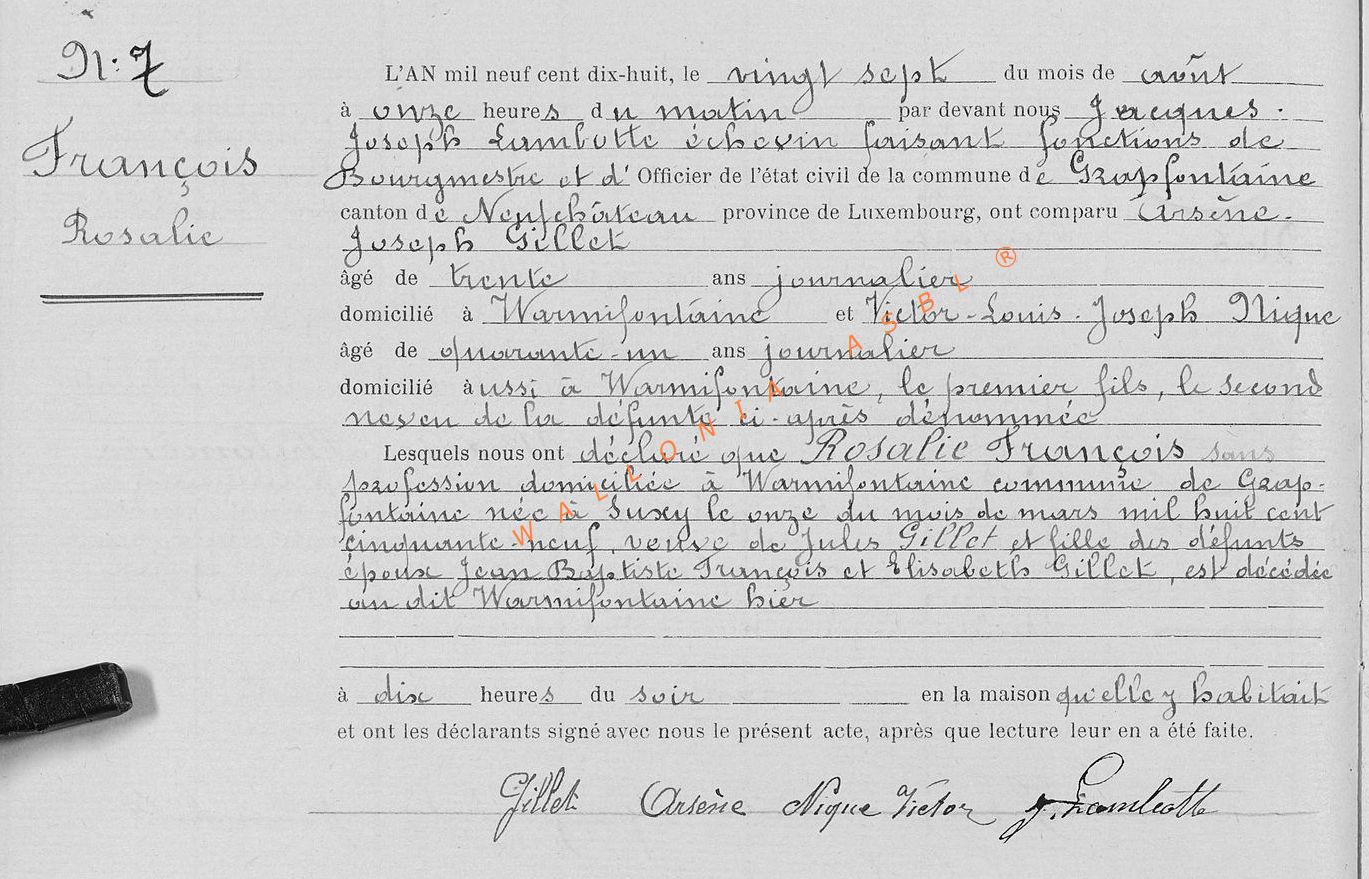 N: 7
François
Rosalie
L'AN mil neuf cent dix-huit, le vingt sept du mois de août
à onze heures du matin par devant nous Jacques-
Joseph Lambotte échevin faisant fonctions de
Bourgmestre et d' Officier de l'état civil de la commune de Grapfontaine
canton de Neufchâteau province de Luxembourg, ont comparu Arsène-
Joseph Gillet
âgé de trente ans journalier
domicilié à Warmifontaine et Victor-Louis-Joseph Nique
âgé de quarante-un ans journalier
domicilié aussi à Warmifontaine, le premier fils, le second
neveu de la défunte ci-après dénommée
Lesquels nous ont déclaré que Rosalie François sans
profession domiciliée à Warmifontaine commune de Grap-
fontaine née à Suxy le onze du mois de mars mil huit cent
cinquante-neuf, veuve de Jules Gillet et fille des défunts
époux Jean Baptiste François et Elisabeth Gillet, est décédée
au dit Warmifontaine hier
à dix heures du soir en la maison qu'elle y habitait
et ont les déclarants signé avec nous le présent acte, après que lecture leur en a été faite.
Gillet Arsène Nique Victor J. Lambotte
WALLONIA ASBL ®